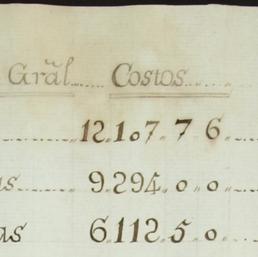 Grãl...... Costos......
12.107.7 6.
as........ 9.294.0.0.
as 6.112.5.0.